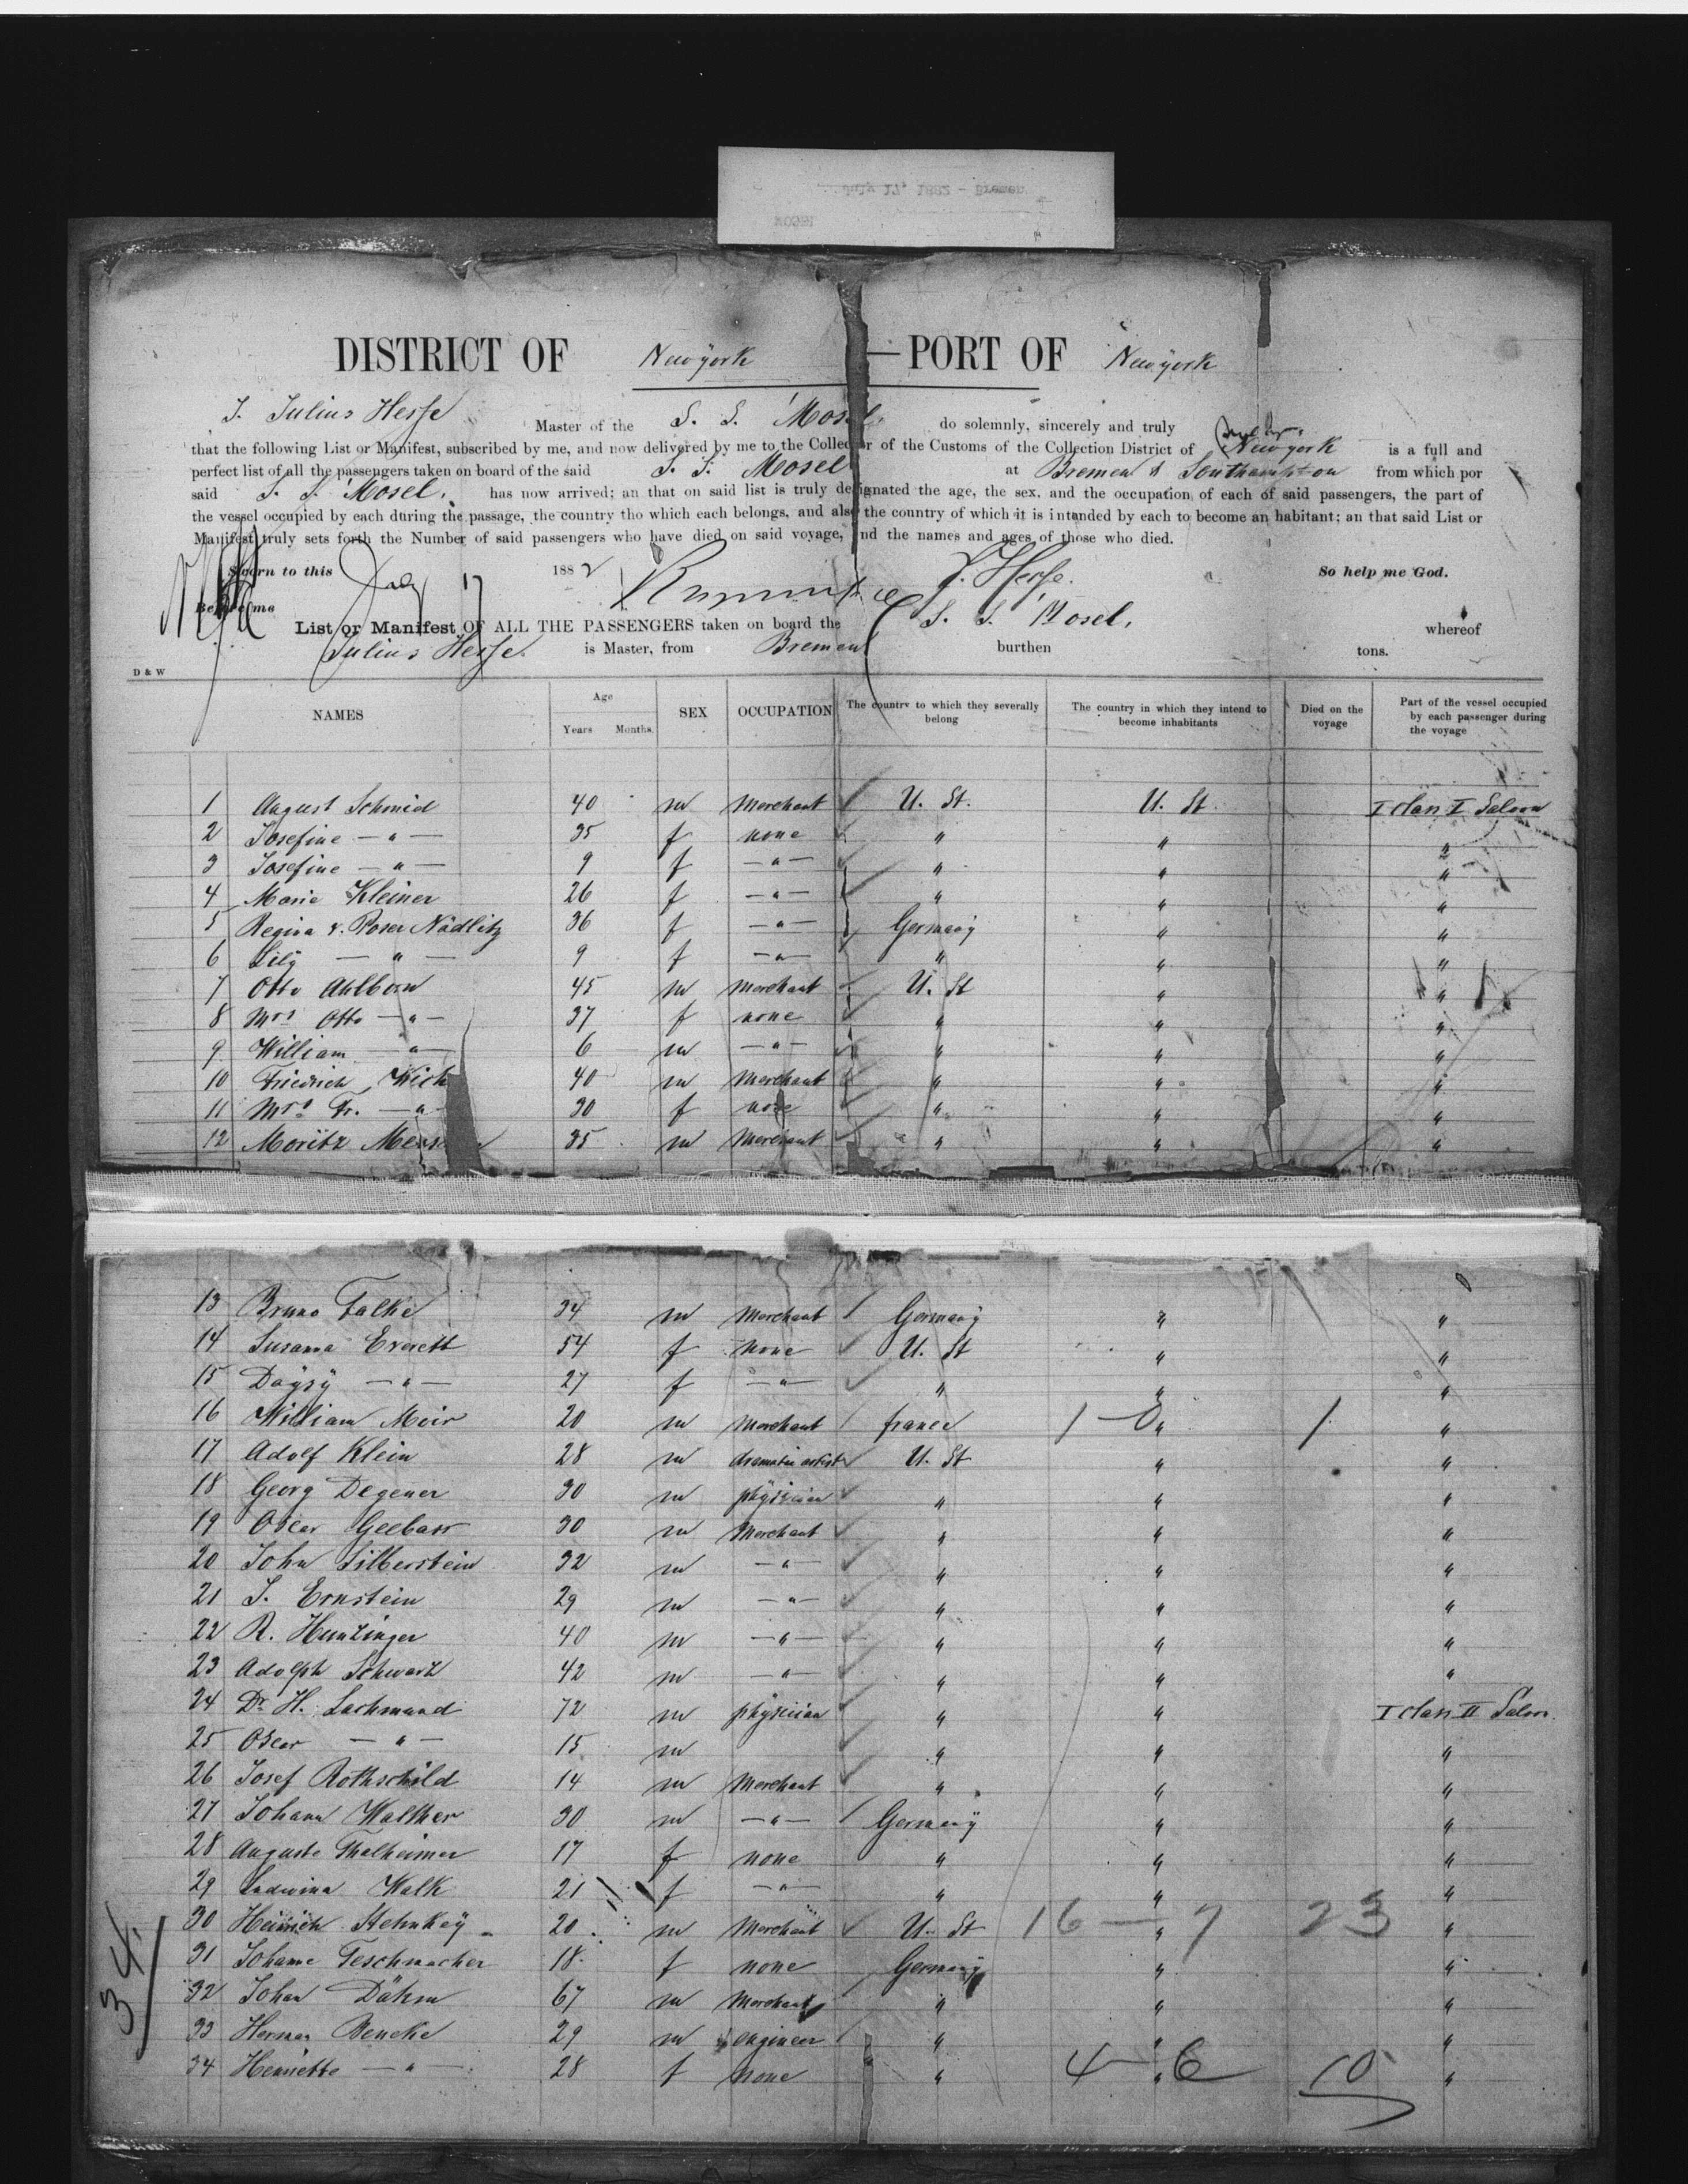 July 17, 1882 - Bremen
MOSEL
DISTRICT OF Newyork — PORT OF Newyork
I. Julius Hesse Master of the S. S. Mosel do solemnly, sincerely and truly
that the following List or Manifest, subscribed by me, and now delivered by me to the Collector of the Customs of the Collection District of Newyork is a full and
perfect list of all the passengers taken on board of the said S. S. Mosel at Bremen & Southampton from which por
said S. S. Mosel. has now arrived; an that on said list is truly designated the age, the sex, and the occupation of each of said passengers, the part of
the vessel occupied by each during the passage, the country tho which each belongs, and also the country of which it is intanded by each to become an habitant; an that said List or
Manifest truly sets forth the Number of said passengers who have died on said voyage, and the names and ages of those who died.
Sworn to this July 17 1882 J. Hesse. So help me God.
Before me
List or Manifest OF ALL THE PASSENGERS taken on board the S. S. Mosel. whereof
Julius Hesse. is Master, from Bremen burthen tons.
D & W
NAMES Age Years Months SEX OCCUPATION The country to which they severally belong The country in which they intend to become inhabitants Died on the voyage Part of the vessel occupied by each passenger during the voyage
1 August Schmid 40 m Merchant U. St. U. St. I class I Saloon
2 Josefine — " — 35 f none " " "
3 Josefine — " — 9 f — " — " " "
4 Marie Kleiner 26 f — " — " " "
5 Regina v. Poser Nädlitz 36 f — " — Germany " "
6 Lily — " — 9 f — " — " " "
7 Otto Ahlborn 45 m Merchant U. St " "
8 Mrs Otto — " — 37 f none " " "
9 William — " — 6 m — " — " " "
10 Friedrich 40 m Merchant " " "
11 Mrs Fr. — " — 30 f none " " "
12 Moritz 35 m Merchant " " "
13 Bruno Falke 34 m Merchant Germany " "
14 Susanna Everett 54 f none U. St " "
15 Daysy — " — 27 f — " — " " "
16 William Meir 20 m Merchant france 1 — 0 " 1 "
17 Adolf Klein 28 m dramatic artist U. St " "
18 Georg Degener 30 m physician " " "
19 Oscar 30 m Merchant " " "
20 John Silberstein 32 m — " — " " "
21 J. Ernstein 29 m — " — " " "
22 R. Hunzinger 40 m — " — " " "
23 Adolph Schwarz 42 m — " — " " "
24 Dr. H. Lachmund 72 m physician " " I class II Saloon.
25 Oscar — " — 15 m " " "
26 Josef Rothschild 14 m Merchant " " "
27 Johann Walther 30 m — " — Germany " "
28 Auguste Thalheimer 17 f none " " "
29 Ludwina Walk 21 f — " — " " "
30 Heinrich Stehnkey 20 m Merchant U. St 16 — 7 " 23 "
31 Johanne Teschmacher 18 f none Germany " "
32 Johan Dähm 67 m Merchant " " "
33 Herman Beneke 29 m engineer " " "
34 Henriette — " — 28 f none " 4 — 6 " 10 "
34